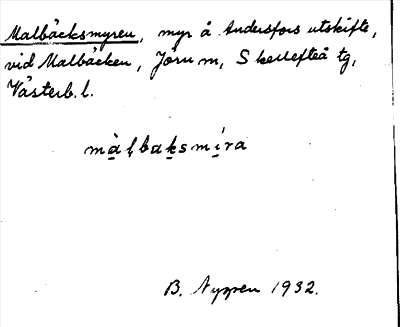 Malbäcksmyren, myr å Andersfors utskifte,
vid Malbäcken, Jörn m, Skellefteå tg,
Västerb. l.
màḷbaksmíra
B. Nyssen 1932.